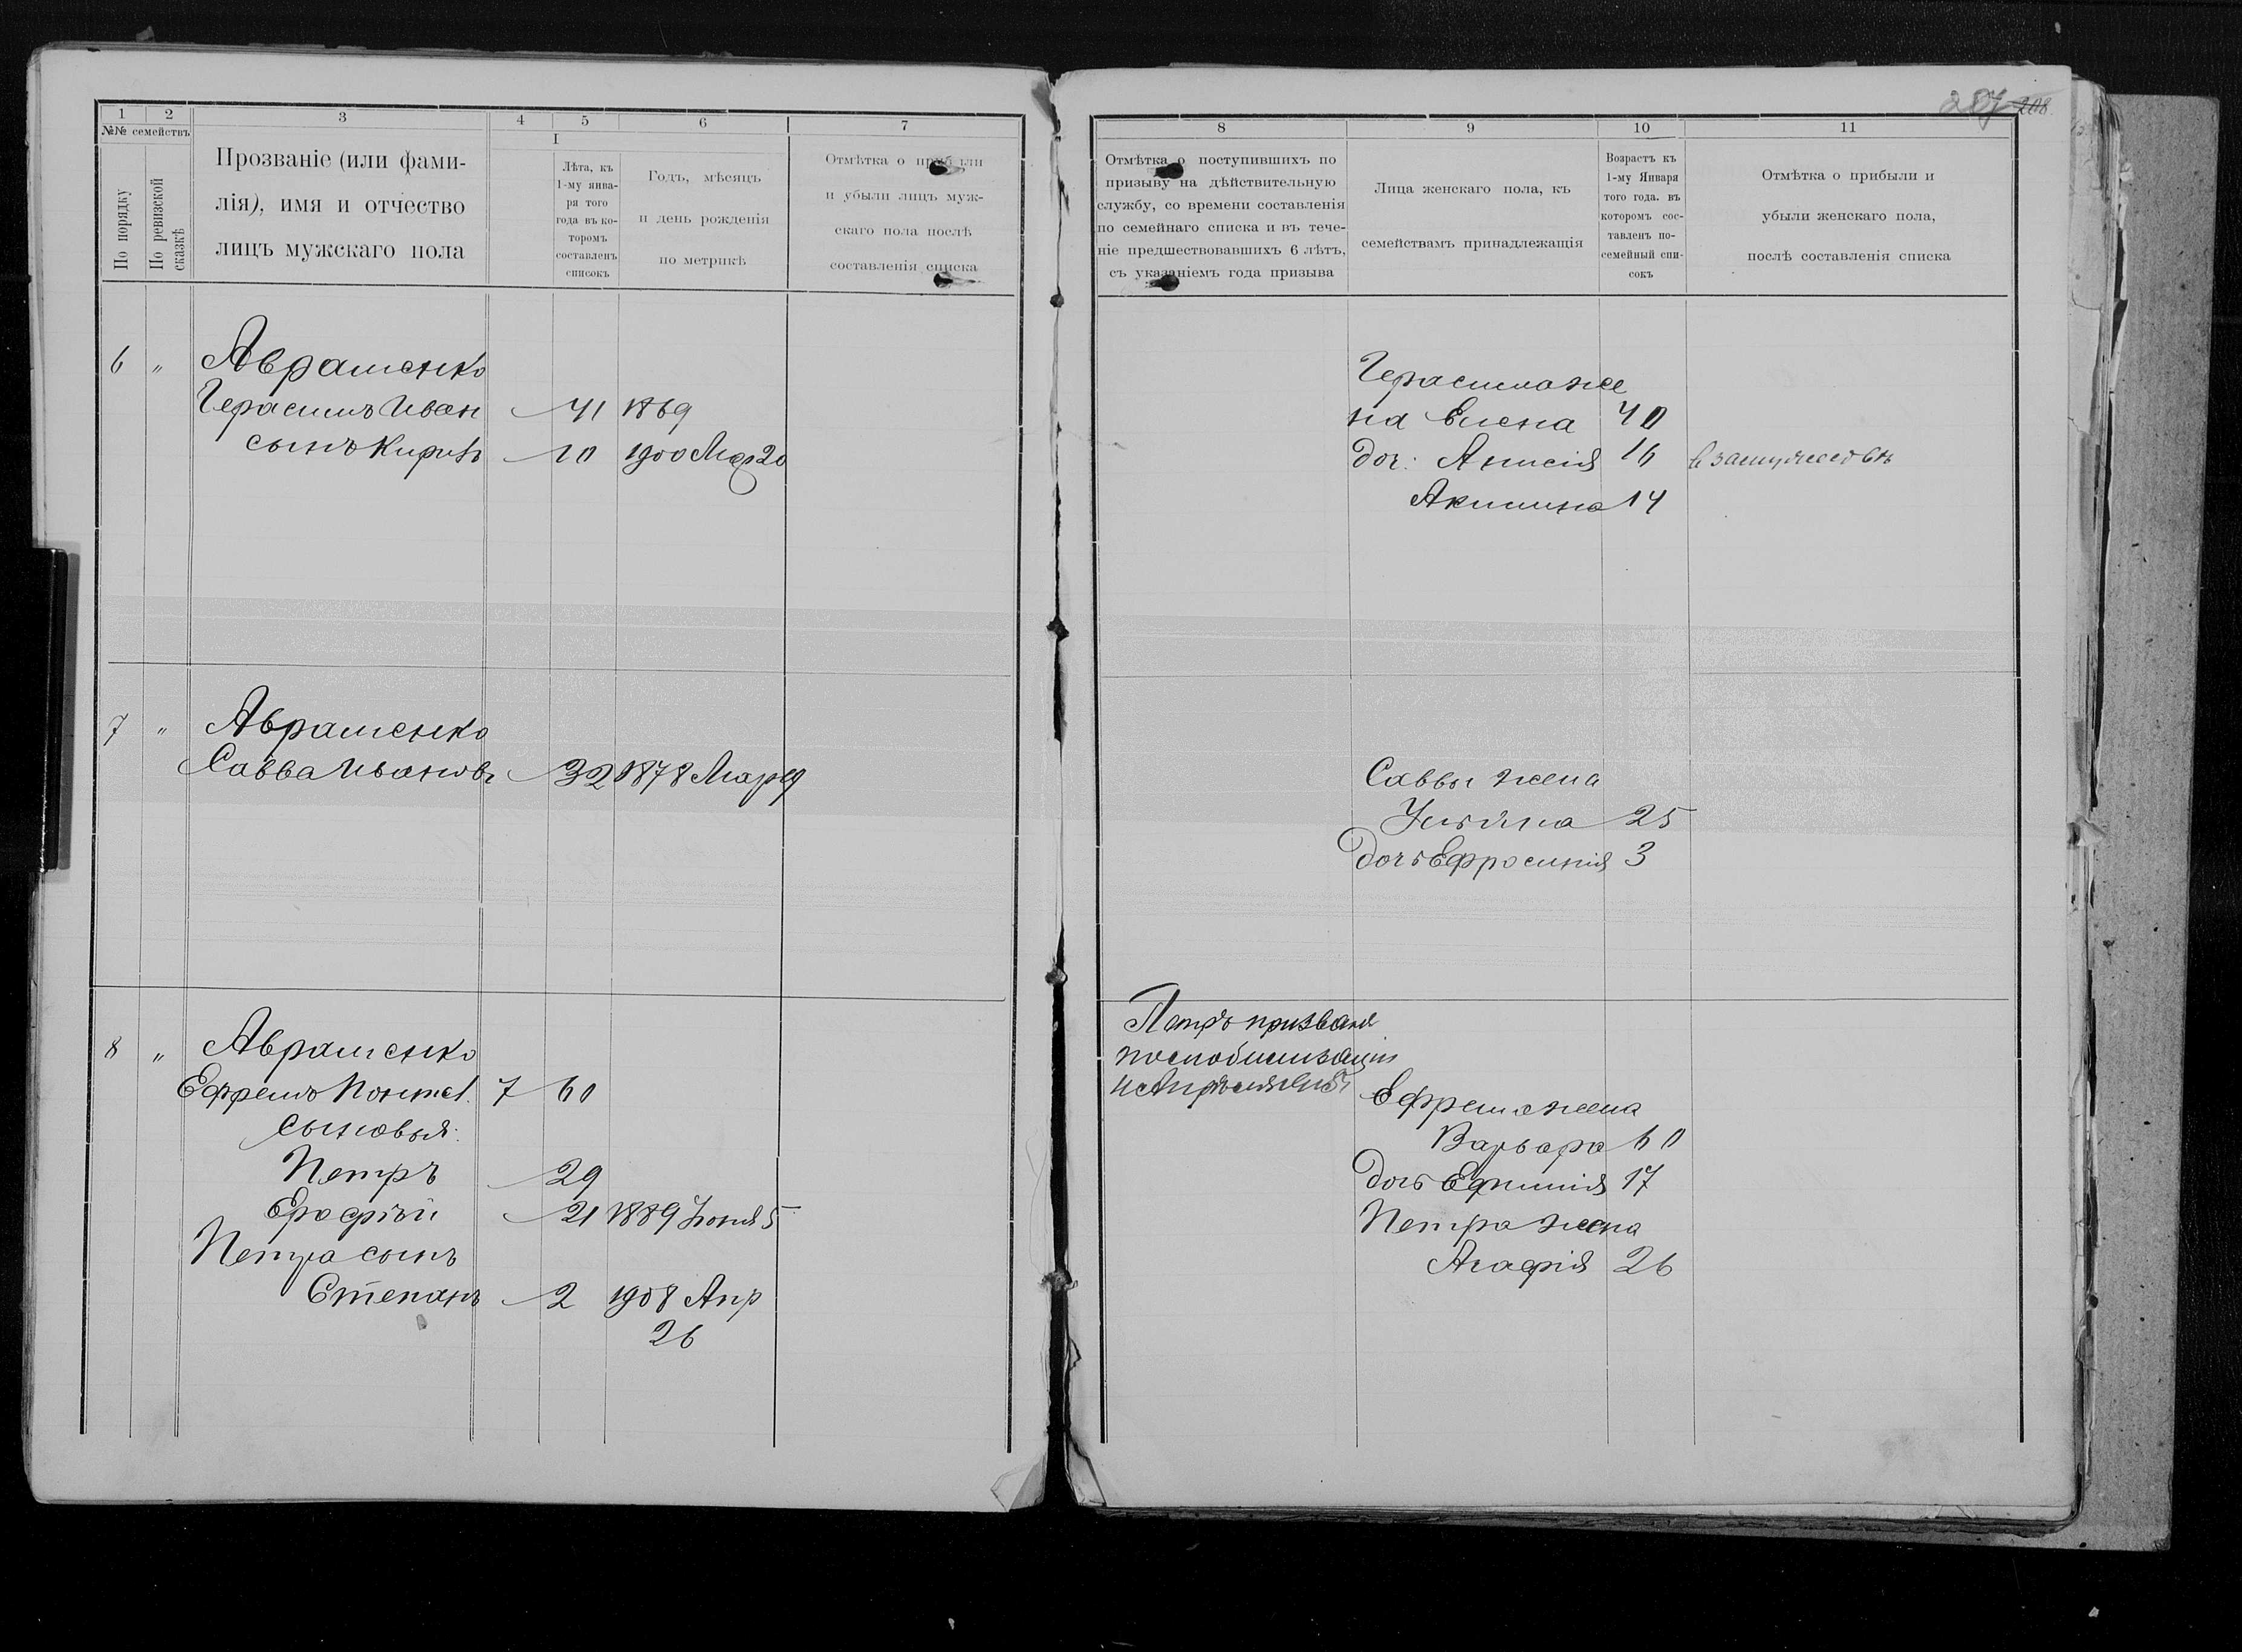 1 2 3 4 5 6 7
№№ семействъ
По порядку
По ревизской сказкѣ
Прозваніе (или фами-
лія), имя и отчество
лицъ мужскаго пола
I
Лѣта, къ
1-му янва-
ря того
года въ ко-
торомъ
составленъ
списокъ
Годъ, мѣсяцъ
и день рожденія
по метрикѣ
Отмѣтка о прибыли
и убыли лицъ муж-
скаго пола послѣ
составленія списка
6 " Авраменко
Герасимъ Иван 41 1869
сынъ 10 1900 Мар 20
7 " Авраменко
Савва Ивановъ 32 1878
8 " Авраменко
Ефремъ 7 60
Сыновья:
Петръ 29
Ерофѣй 21 1889 Іюня 5
Петра сынъ
Степанъ 2 1908 Апр
26
207 208
8 9 10 11
Отмѣтка о поступившихъ по
призыву на дѣйствительную
службу, со времени составленія
по семейнаго списка и въ тече-
ніе предшествовавшихъ 6 лѣтъ,
съ указаніемъ года призыва
Лица женскаго пола, къ
семействамъ принадлежащія
Возрастъ къ
1-му Января
того года. въ
которомъ сос-
тавленъ по-
семейный спи-
сокъ
Отмѣтка о прибыли и
убыли женскаго пола,
послѣ составленія списка
Герасима же
на Елена 40
доч: Анисія 16 в замужествѣ
Акилина 14
Саввы жена
Ульяна 25
дочь Ефросинія 3
Петръ призванъ
по мобилизаціи
Ефрема жена
Варвара 60
дочь Ефимія 17
Петра жена
Агафія 26